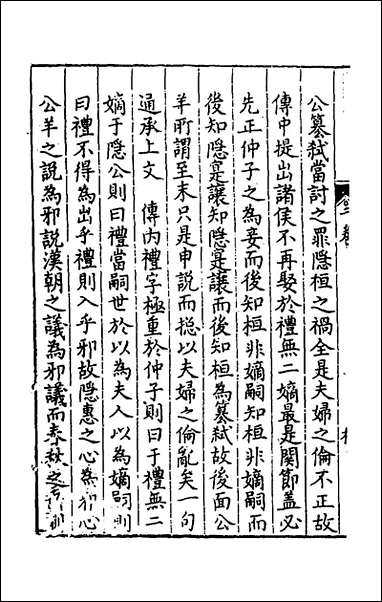 公篡弒當討之罪隱桓之禍全是夫婦之倫不正故
傳中提出諸侯不再娶於禮無二嫡最是関節盖必
先正仲子之為妾而後知桓非嫡嗣知桓非嫡嗣而
後知隱寔讓知隱寔讓而後知桓為篡弒故後面公
羊所謂至末只是申說而捴以夫婦之倫亂矣一句
通承上文　傳內禮字極重於仲子則曰于禮無二
嫡于隱公則曰禮當嗣世於以為夫人以為嫡嗣則
曰禮不得為出乎禮則入乎邪故隱惠之心為邪心
公羊之說為邪說漢朝之議為邪議而春秋之